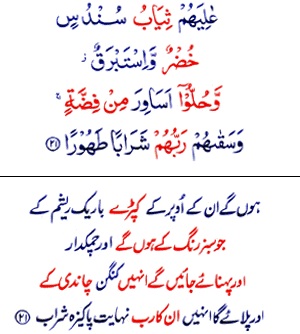 عٰلِيَهُمْ ثِيَابُ سُنْدُسٍ
خُضْرٌ وَّاِسْتَبْرَقٌ ز
وَّحُلُّوْۤا اَسَاوِرَ مِنْ فِضَّةٍ ۚ
وَسَقٰىهُمْ رَبُّهُمْ شَرَابًا طَهُوْرًا ﴿۲۱﴾
ہوں گے ان کے اُوپر کے کپڑے باریک ریشم کے
جو سبز رنگ کے ہوں گے اور چمکدار
اور پہنائے جائیں گے انہیں کنگن چاندی کے
اور پلائے گا انہیں ان کا رب نہایت پاکیزہ شراب ﴿۲۱﴾